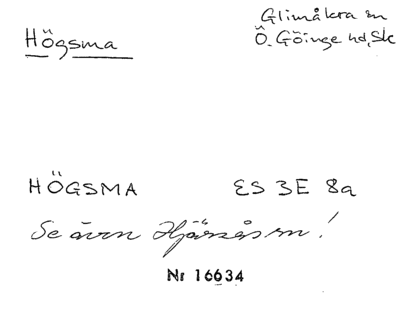 Högsma
Glimåkra sn
Ö. Göinge hd, Sk
HÖGSMA ES 3E 8a
Se även Hjärsås sn!
Nr 16634